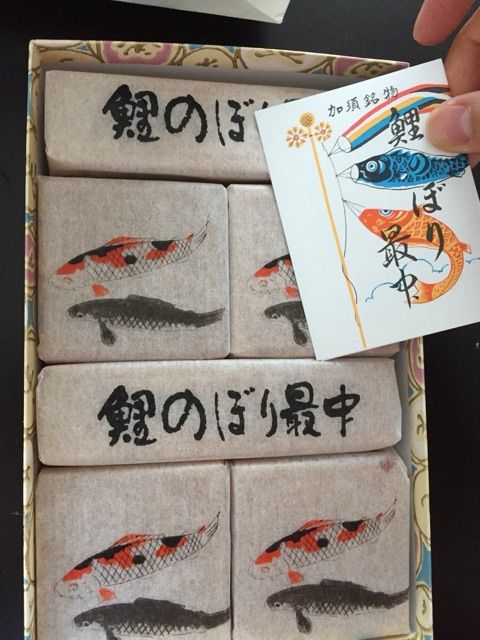 鯉のぼり
加須銘物
鯉のぼり
最中
鯉のぼり最中